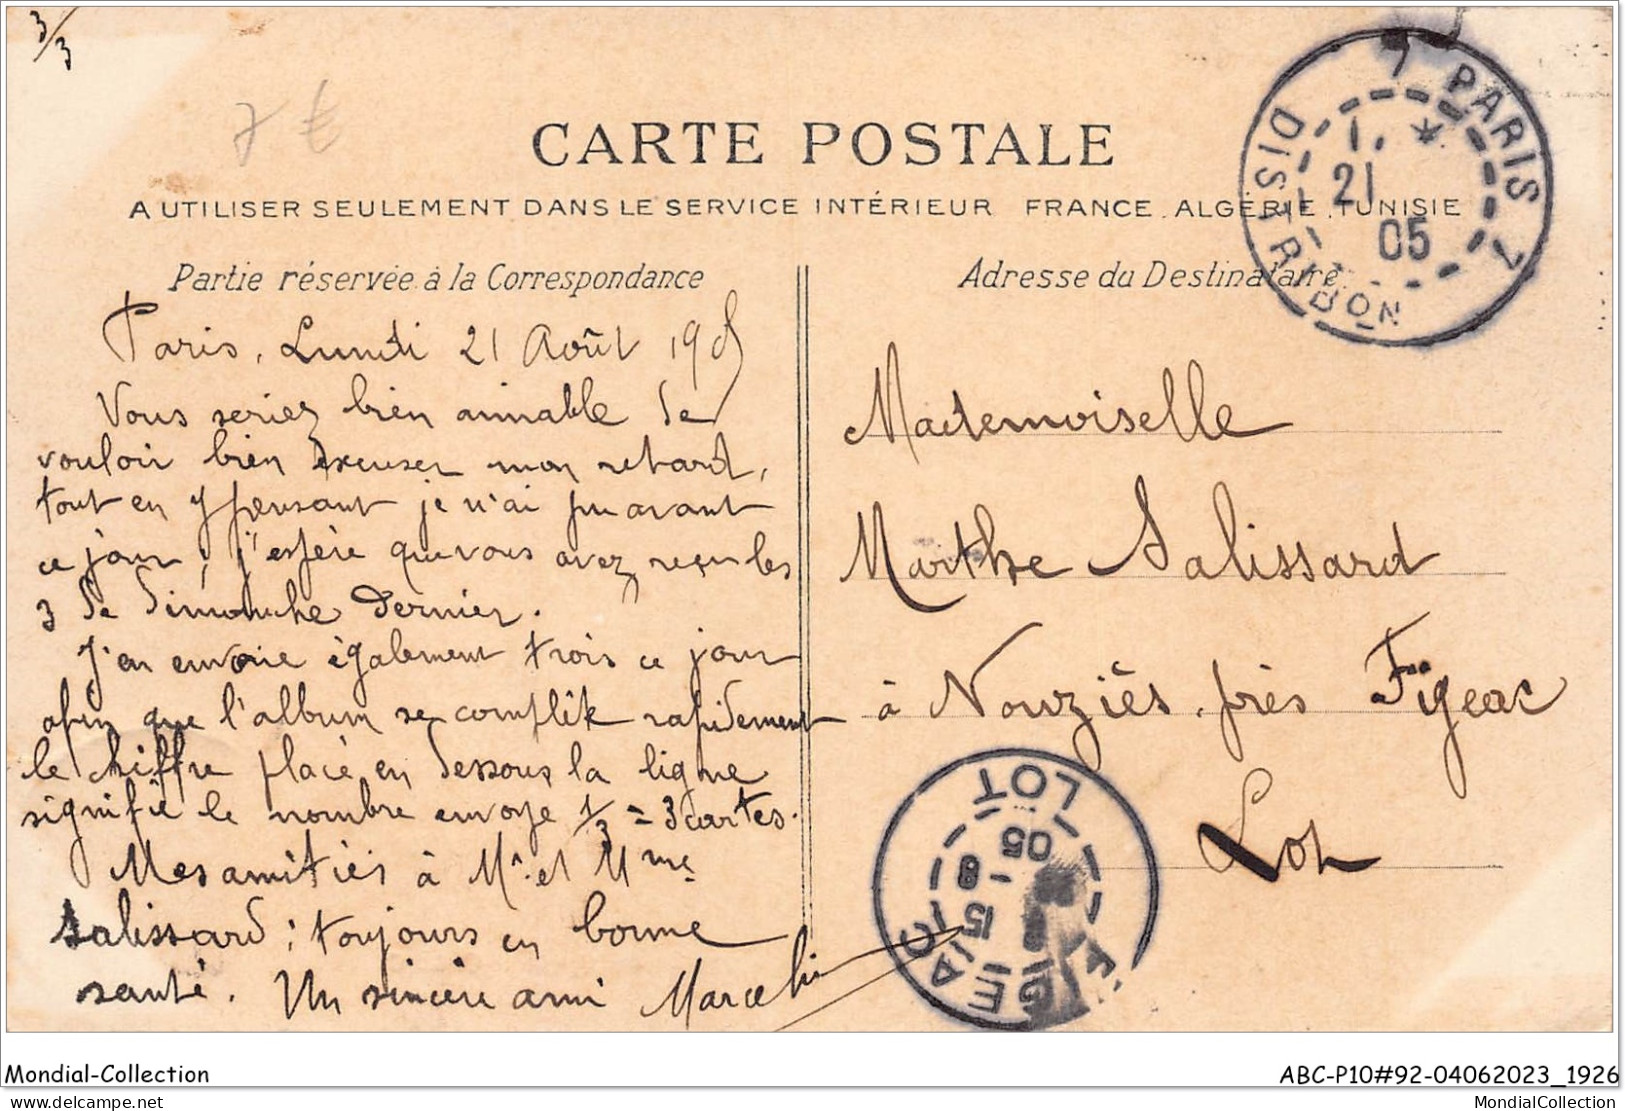 3/3
7 €
CARTE POSTALE
A UTILISER SEULEMENT DANS LE SERVICE INTÉRIEUR FRANCE. ALGÉRIE. TUNISIE
Partie réservée à la Correspondance
Adresse du Destinataire
7 PARIS 7
DISTRIBON
1. *
21
05
Paris, Lundi 21 Août 1905
Vous seriez bien aimable de
vouloir bien excuser mon retard,
tout en y pensant je n'ai pu avant
ce jour; j'espère que vous avez reçu les
3 de Dimanche dernier.
J'en envoie également trois ce jour
afin que l'album se complète rapidement
le chiffre placé en dessous la ligne
signifie le nombre envoyé 1/3 = 3 cartes.
Mes amitiés à Mr. et Mme
Salissard; toujours en bonne
santé. Un sincère ami Marcelin
Mademoiselle
Marthe Salissard
à Nouziès, près Figeac
Lot
FIGEAC
LOT
15
8
05
Mondial-Collection
ABC-P10#92-04062023_1926
delcampe.net
MondialCollection